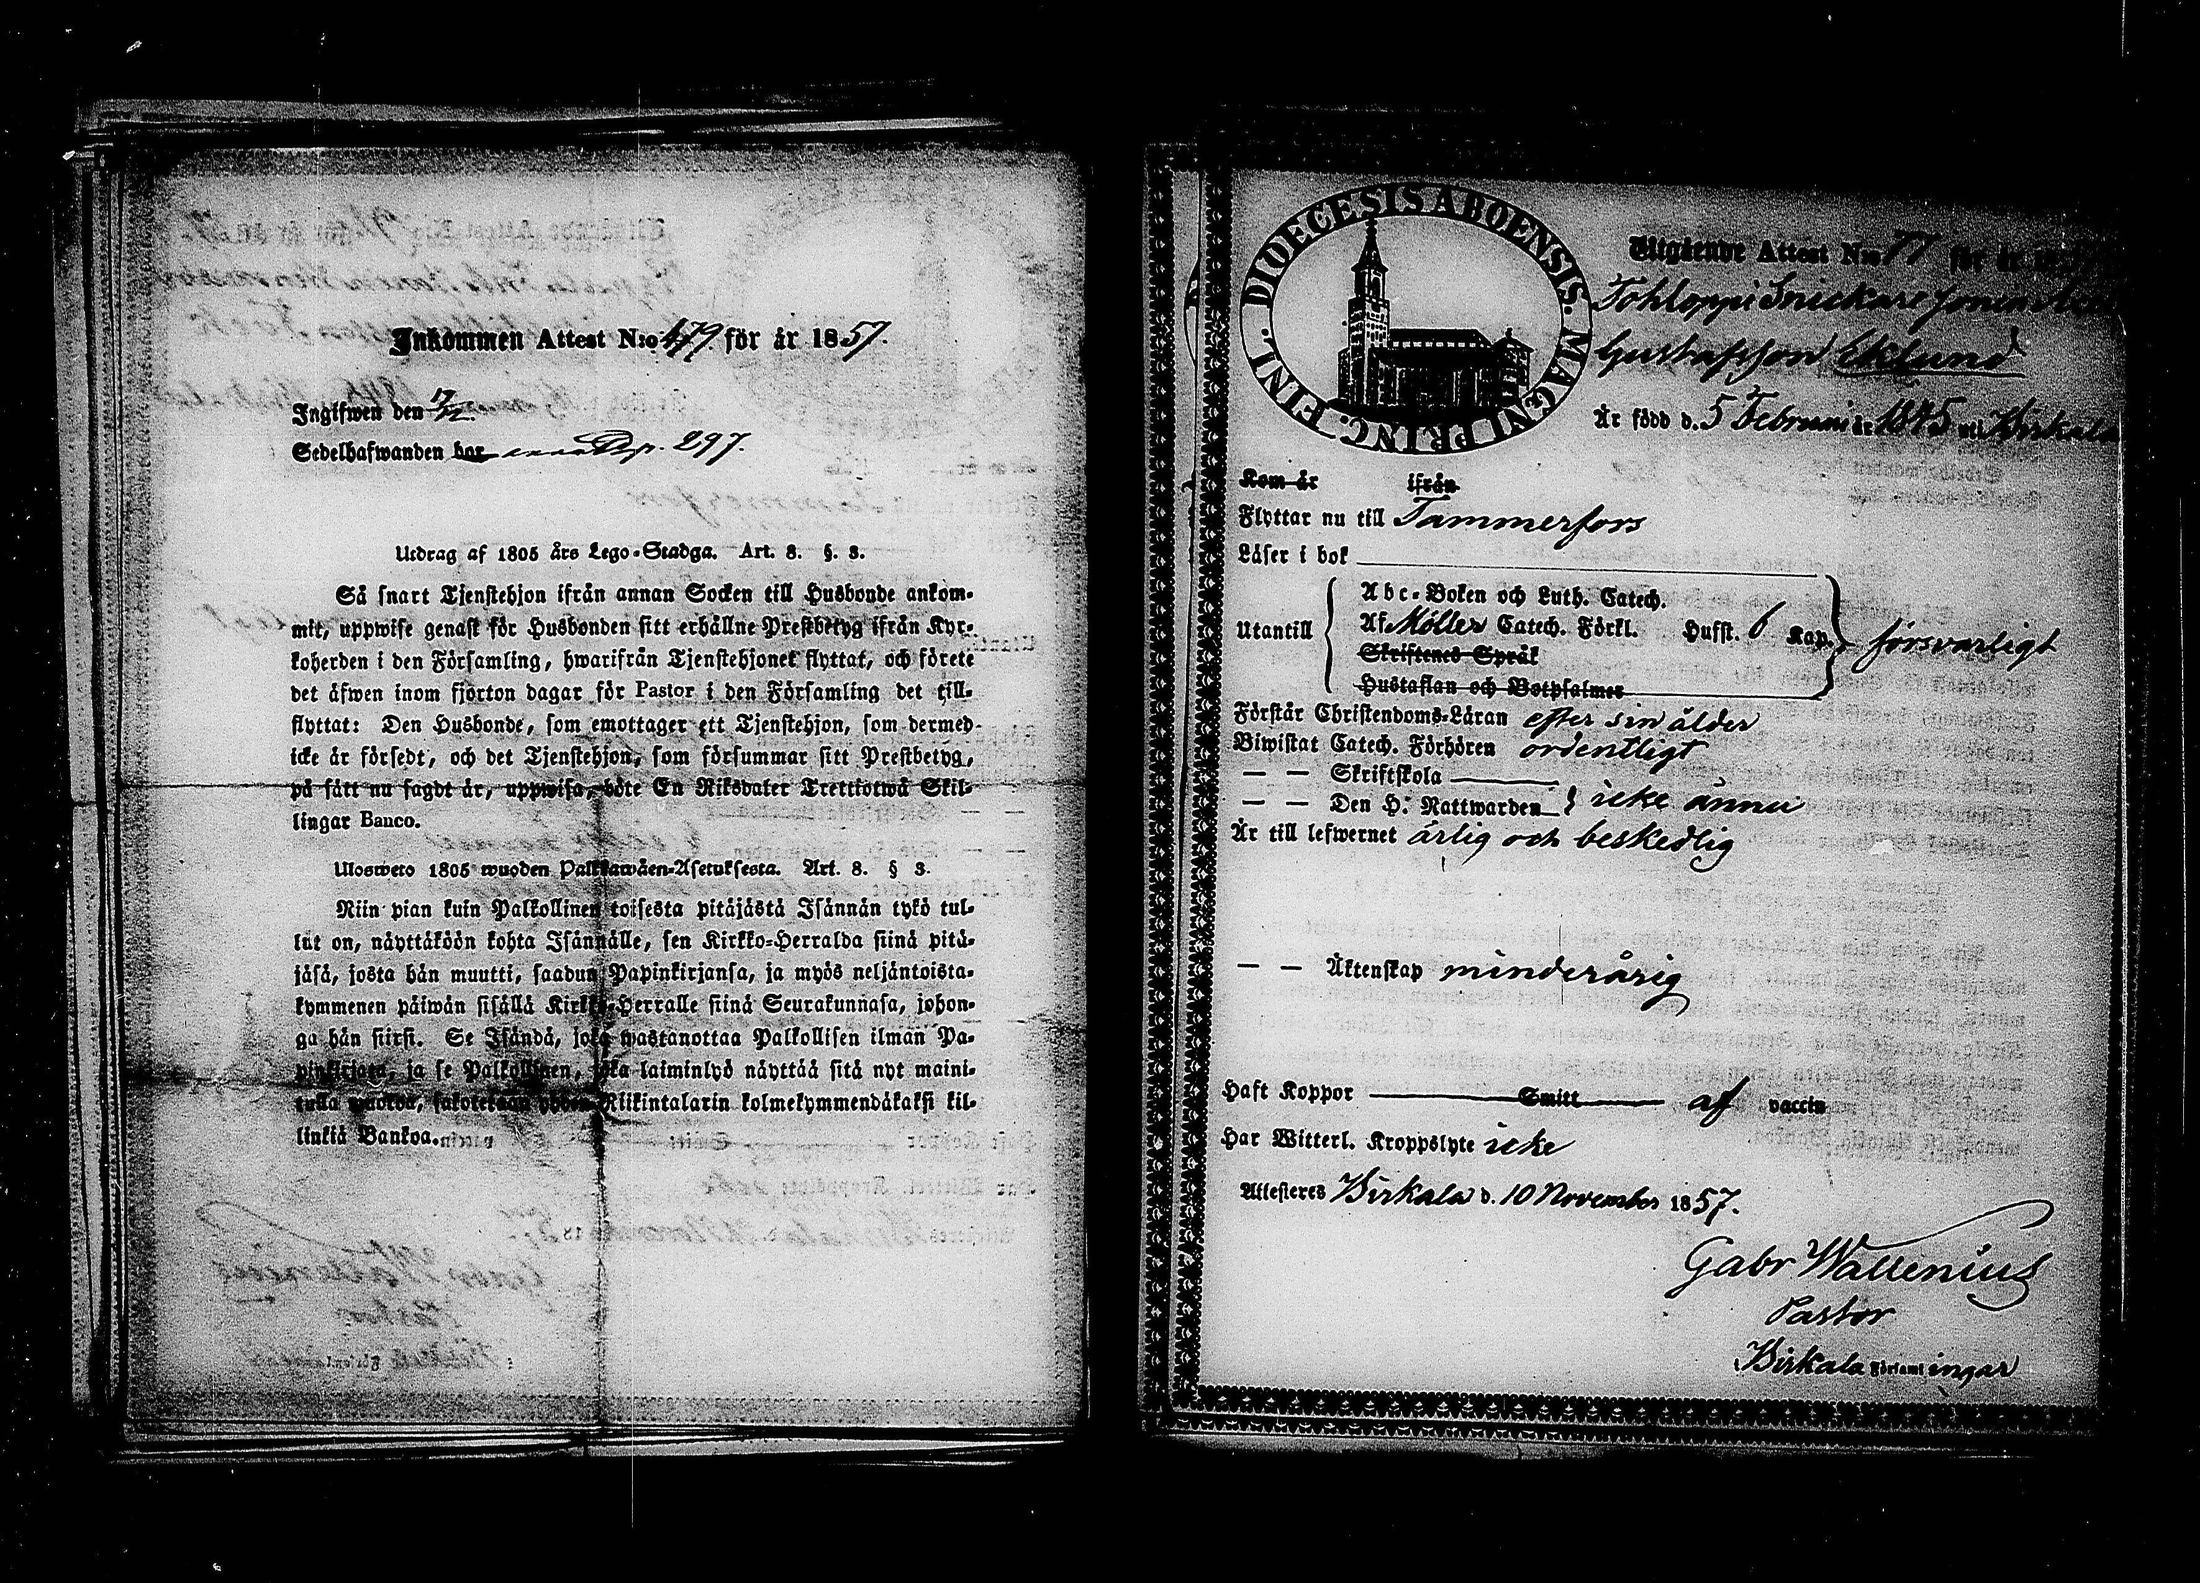 Inkommen Attest N:o 479 för år 1857.
Ingifwen den 17/12.
Sedelhafwanden har p. 297.
Utdrag af 1805 års Lego-Stadga. Art. 8. §. 3.
Så snart Tjenstehjon ifrån annan Socken till Husbonde ankom-
mit, uppwise genast för Husbonden sitt erhållne Prestbetyg ifrån Kyr-
koherden i den Församling, hwarifrån Tjenstehjonet flyttat, och förete
det äfwen inom fjorton dagar för Pastor i den Församling det till-
flyttat: Den Husbonde, som emottager ett Tjenstehjon, som dermed
icke är försedt, och det Tjenstehjon, som försummar sitt Prestbetyg,
på sätt nu sagdt är, uppwisa, böte En Riksdaler Trettiotwå Skil-
lingar Banco.
Ulosweto 1805 wuoden Palkkawäen-Asetuksesta. Art. 8. § 3.
Niin pian kuin Palkollinen toisesta pitäjästä Isännän tykö tul-
lut on, näyttäköön kohta Isännälle, sen Kirkko-Herralda siinä pitä-
jäsä, josta hän muutti, saadun Papinkirjansa, ja myös neljäntoista-
kymmenen päiwän sisällä Kirkko-Herralle siinä Seurakunnasa, johon-
ga hän siirsi. Se Isändä, joka wastanottaa Palkollisen ilman Pa-
pinkirjata, ja se Palkollinen, joka laiminlyö näyttää sitä nyt maini-
tulla muotoa, sakotetaan yhden Riikintalarin kolmekymmendäkaksi kil-
linkiä Bankoa.
DIOECESIS ABOENSIS. MAGNI PRINC. FINL.
Utgående Attest N:o 77 för år
Tohloppi Snickare sonen
Gustafsson Eklund
Är född d. 5 Februari år 1845 uti Birkala
Kom år ifrån
Flyttar nu till Tammerfors
Läser i bok
Utantill
Abc-Boken och Luth. Catech.
Af Möller Catech. Förkl. Hufst. 6 Kap. försvarligt
Skriftenes Språk
Hustaflan och Botpsalmer
Förstår Christendoms-Läran efter sin ålder
Biwistat Catech. Förhören ordentligt
— — Skriftskola
— — Den H. Nattwarden } icke ännu
Är till lefwernet ärlig och beskedlig
— — Äktenskap minderårig
Haft Koppor Smitt af vaccin
Har Witterl. Kroppslyte icke
Attesteras Birkala d. 10 November 1857.
Gabr Wallenius
Pastor
Birkala Församlingar